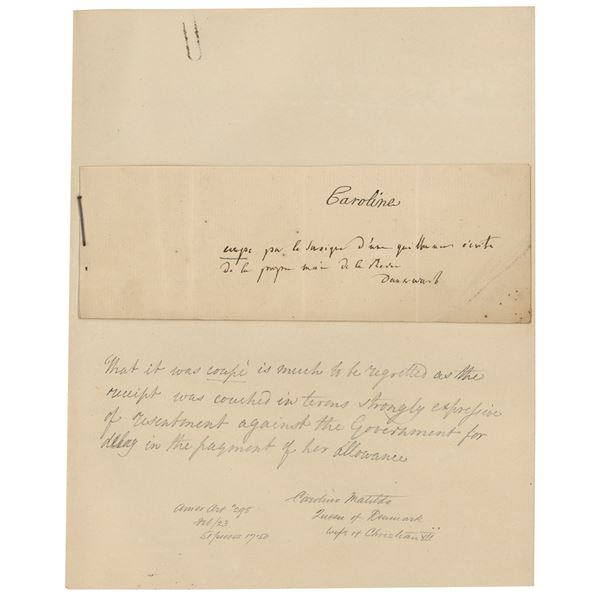 Caroline
coupé par le d'une quittance écrite
de la propre main de la Reine
That it was coupé is much to be regretted as the
receipt was couched in terms strongly expressive
of resentment against the Government for
delay in the payment of her allowance
Caroline Matilda
Queen of Denmark
wife of Christian VII
Amer Art '295
17.50